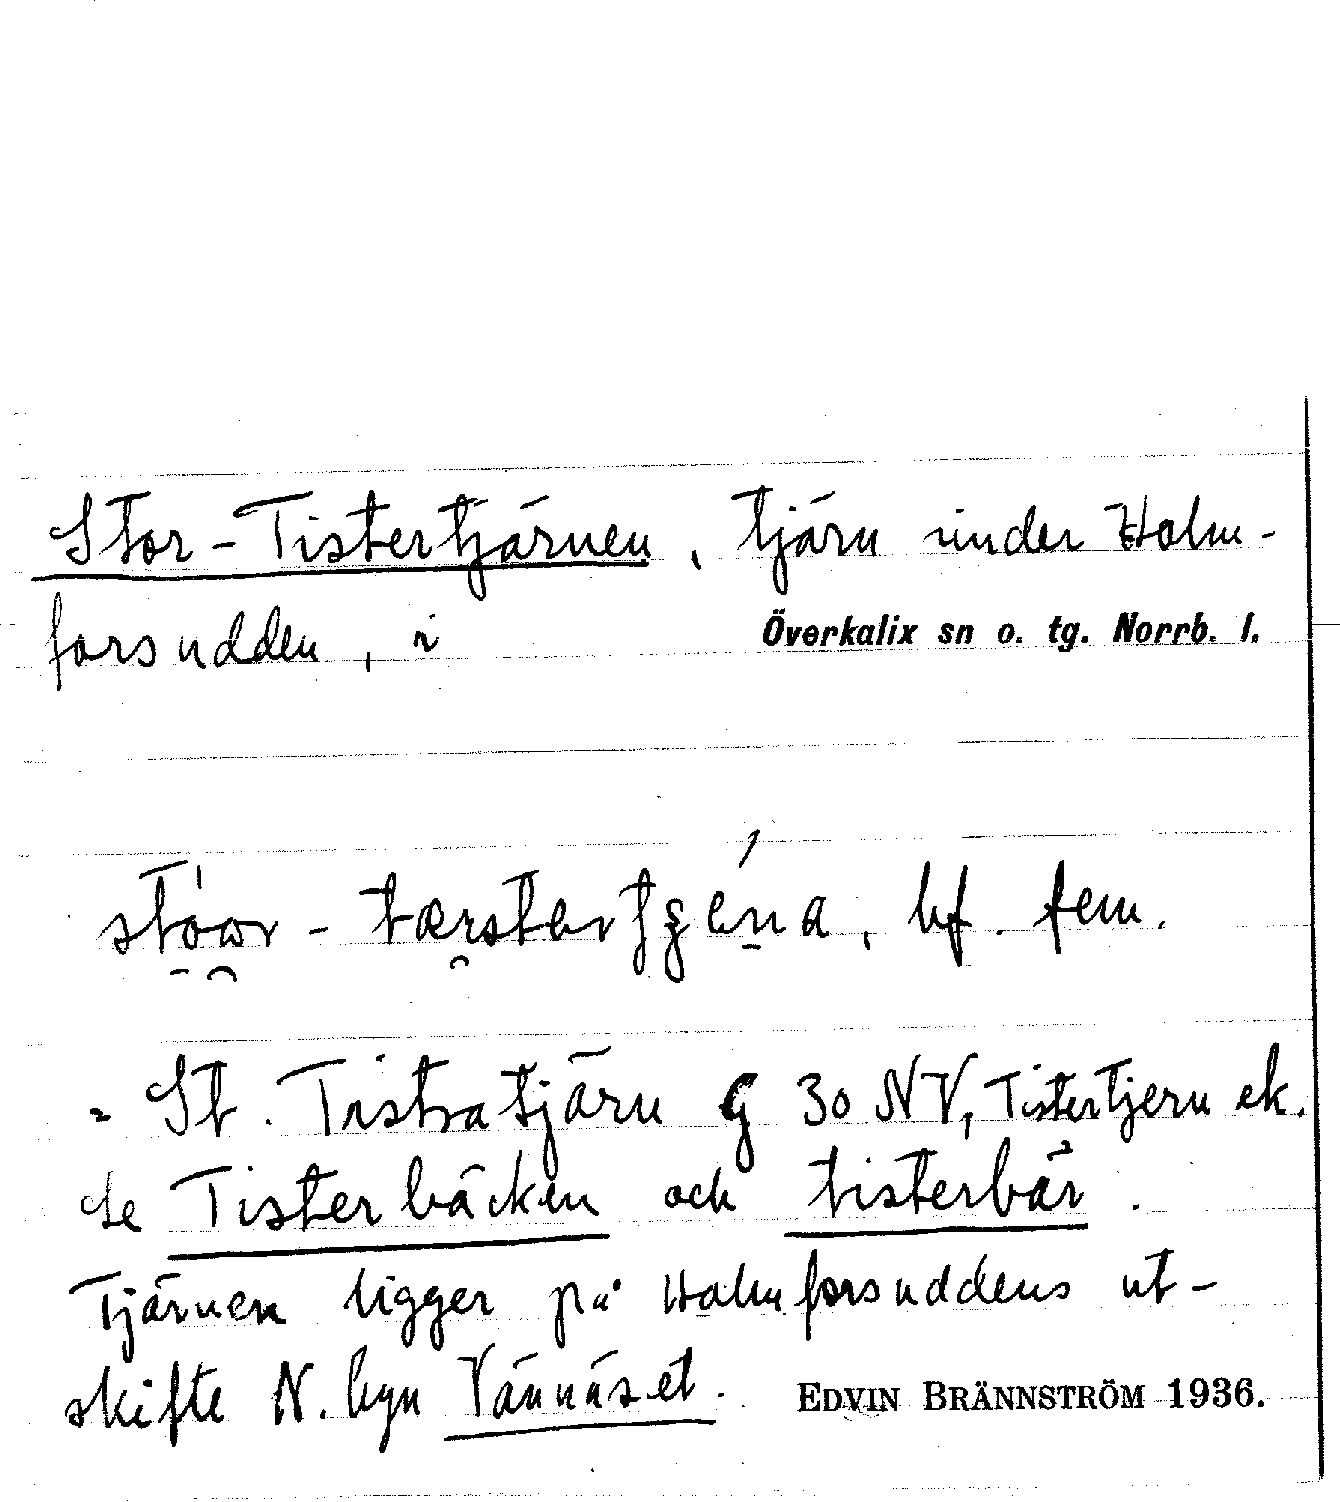 Stor-Tistertjärnen, tjärn under Holm-
forsudden, i Överkalix sn o. tg. Norrb. l.
bf. fem.
= St. Tistratjärn G 30 NV, Tistertjern ek.
Se Tisterbäcken och tisterbär.
Tjärnen ligger på Holmforsuddens ut-
skifte N. byn Vännäset. EDVIN BRÄNNSTRÖM 1936.